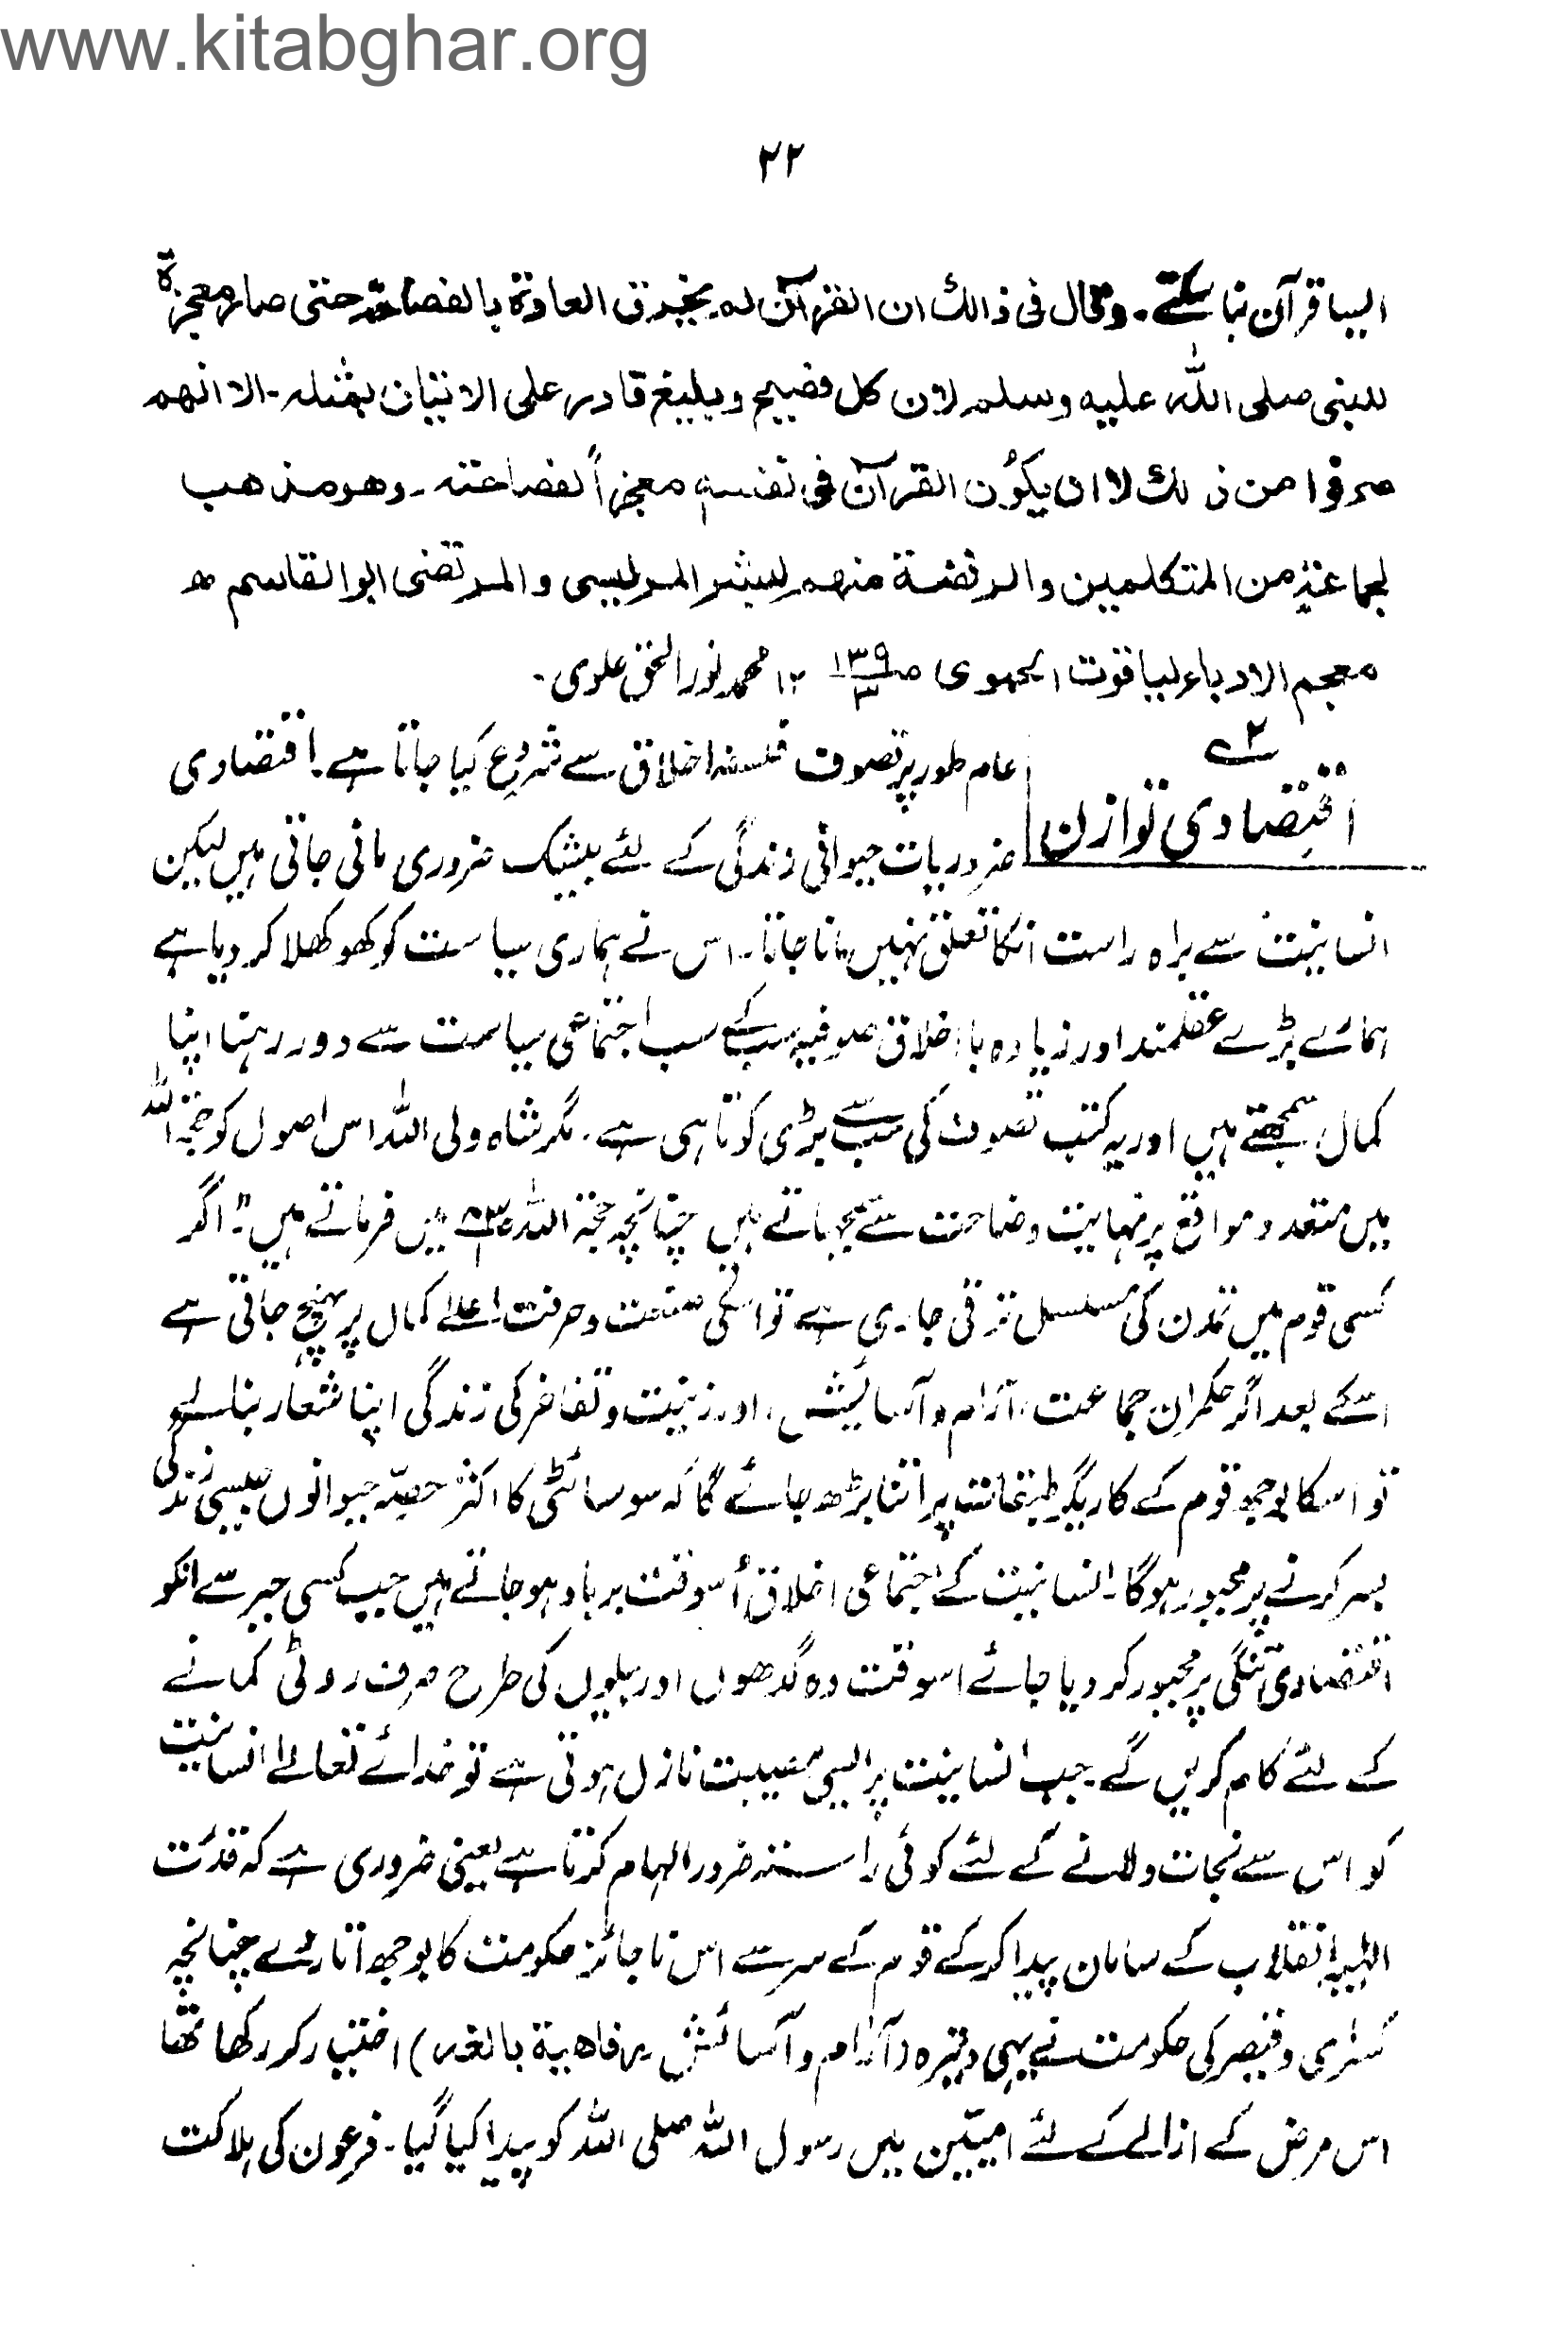 www.kitabghar.org
۲۲
ایسا قرآن بنا سکتے۔ وقال فی ذالك ان القرآن لم یخرق العادة بالفصاحة حتی صار معجزة
للنبی صلی اللہ علیه وسلم لان کل فصیح وبلیغ قادر علی الاتیان بمثله۔ الا انهم
صرفوا من ذلك لا ان یکون القرآن فی نفسه معجزاً لفصاحته۔ وهو مذهب
لجماعة من المتکلمین والرفضة منهم لبشر المریسی والمرتضی ابوالقاسم ھ
معجم الادباء لیاقوت الحموی ص ۱۳۹/۳ ۱۲ محمد نور الحق علوی۔
۲
اقتصادی توازن
عام طور پر تصوف فلسفہ اخلاق سے شروع کیا جاتا ہے۔ اقتصادی
ضروریات حیوانی زندگی کے لئے بیشک ضروری مانی جاتی ہیں لیکن
انسانیت سے براہ راست انکا تعلق نہیں مانا جاتا۔ اس نے ہماری سیاست کو کھوکھلا کر دیا ہے
ہمارے بڑے عقلمند اور زیادہ با اخلاق صوفیہ سب کے سب اجتماعی سیاست سے دور رہنا اپنا
کمال سمجھتے ہیں اور یہ کتب تصوف کی سب سے بڑی کوتاہی ہے۔ مگر شاہ ولی اللہ اس اصول کو حجۃ اللہ
میں متعدد مواقع پر نہایت وضاحت سے سمجھاتے ہیں چنانچہ حجۃ اللہ میں فرماتے ہیں"۔ اگر
کسی قوم میں تمدن کی مسلسل ترقی جاری ہے تو اسکی صنعت وحرفت اعلےٰ کمال پر پہنچ جاتی ہے
اسکے بعد اگر حکمران جماعت، آرام وآسائیش، اور زینت وتفاخر کی زندگی اپنا شعار بنالے
تو اسکا بوجھ قوم کے کاریگر طبقات پر اتنا بڑھ جائے گا کہ سوسائٹی کا اکثر حصّہ حیوانوں جیسی زندگی
بسر کرنے پر مجبور ہوگا۔ انسانیت کے اجتماعی اخلاق اُسوقت برباد ہو جاتے ہیں جب کسی جبر سے انکو
اقتصادی تنگی پر مجبور کر دیا جائے اسوقت وہ گدھوں اور بیلوں کی طرح صرف روٹی کمانے
کے لئے کام کریں گے۔ جب انسانیت پر ایسی مصیبت نازل ہوتی ہے تو خدائے تعالےٰ انسانیت
کو اس سے نجات دلانے کے لئے کوئی راستہ ضرور الہام کرتا ہے یعنی ضروری ہے کہ قدرت
الٰہیہ انقلاب کے سامان پیدا کرکے قوم کے سر سے اس ناجائز حکومت کا بوجھ اتار دے چنانچہ
کسریٰ وقیصر کی حکومت نے یہی وتیرہ (آرام وآسائش رفاهیة بالغه) اختیار کر رکھا تھا
اس مرض کے ازالے کے لئے امیّین میں رسول اللہ صلی اللہ کو پیدا کیا گیا۔ فرعون کی ہلاکت